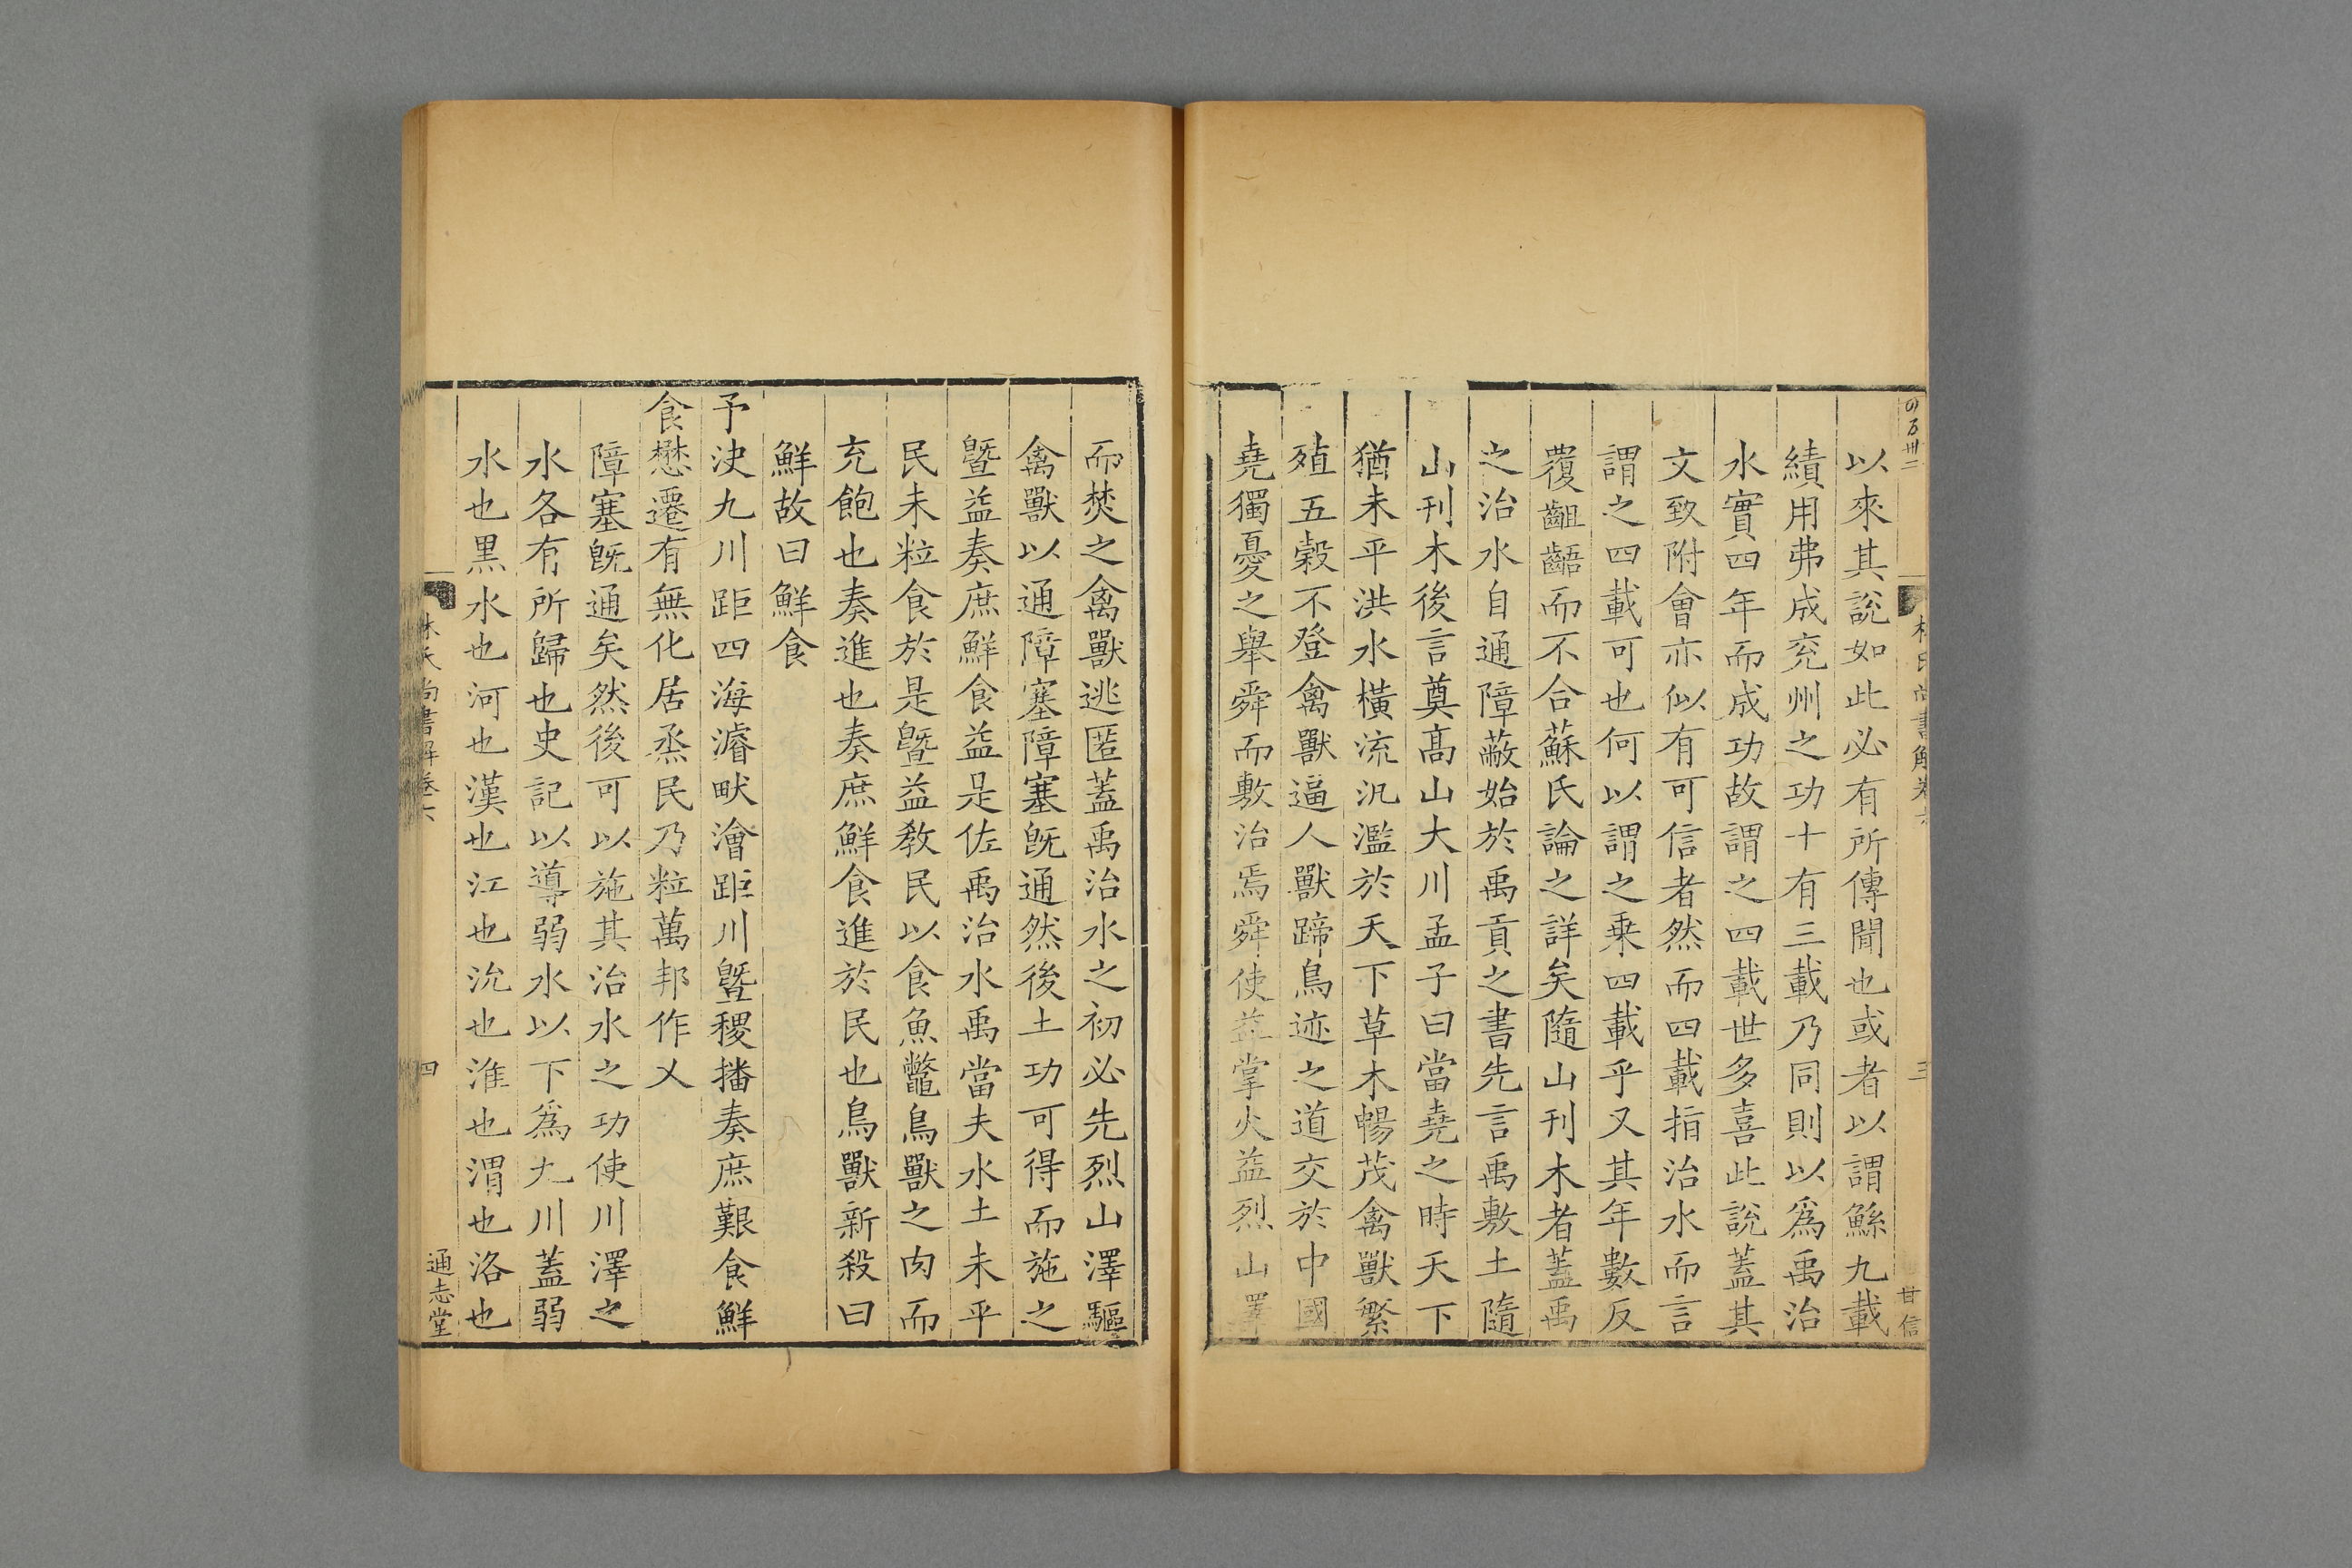 林氏尚書解卷六
三
甘信
以來其說如此必有所傳聞也或者以謂鯀九載
績用弗成兖州之功十有三載乃同則以爲禹治
水實四年而成功故謂之四載世多喜此說蓋其
文致附會亦似有可信者然而四載指治水而言
謂之四載可也何以謂之乗四載乎又其年數反
覆齟齬而不合蘇氏論之詳矣隨山刋木者蓋禹
之治水自通障蔽始於禹貢之書先言禹敷土隨
山刋木後言奠髙山大川孟子曰當堯之時天下
猶未平洪水横流汎濫於天下草木暢茂禽獸繁
殖五穀不登禽獸逼人獸蹄鳥迹之道交於中國
堯獨憂之舉舜而敷治焉舜使益掌火益烈山澤
而焚之禽獸逃匿蓋禹治水之初必先烈山澤驅
禽獸以通障塞障塞旣通然後土功可得而施之
曁益奏庶鮮食益是佐禹治水禹當夫水土未平
民未粒食於是曁益敎民以食魚鼈鳥獸之肉而
充飽也奏進也奏庶鮮食進於民也鳥獸新殺曰
鮮故曰鮮食
予決九川距四海濬畎澮距川曁稷播奏庶艱食鮮
食懋遷有無化居烝民乃粒萬邦作乂
障塞旣通矣然後可以施其治水之功使川澤之
水各有所歸也史記以導弱水以下爲九川蓋弱
水也黒水也河也漢也江也沇也淮也渭也洛也
林氏尚書解卷六
四
通志堂